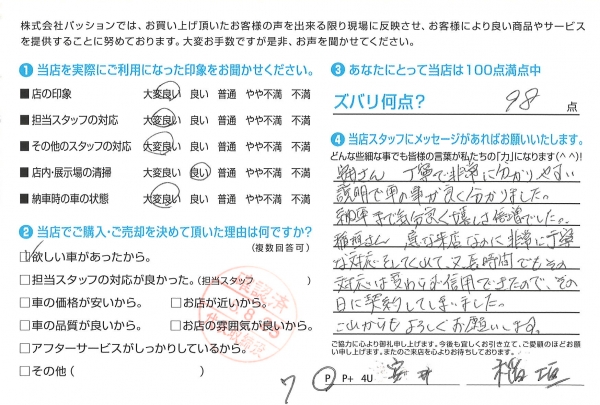 株式会社パッションでは、お買い上げ頂いたお客様の声を出来る限り現場に反映させ、お客様により良い商品やサービス
を提供することに努めております。大変お手数ですが是非、お声を聞かせてください。
1 当店を実際にご利用になった印象をお聞かせください。
■店の印象 大変良い 良い 普通 やや不満 不満
■担当スタッフの対応 大変良い 良い 普通 やや不満 不満
■その他のスタッフの対応 大変良い 良い 普通 やや不満 不満
■店内・展示場の清掃 大変良い 良い 普通 やや不満 不満
■納車時の車の状態 大変良い 良い 普通 やや不満 不満
2 当店でご購入・ご売却を決めて頂いた理由は何ですか?
(複数回答可)
□欲しい車があったから。
□担当スタッフの対応が良かった。(担当スタッフ
□車の価格が安いから。 □お店が近いから。
□車の品質が良いから。 □お店の雰囲気が良いから。
□アフターサービスがしっかりしているから。
□その他 ( )
3 あなたにとって当店は100点満点中
ズバリ何点? 98 点
4 当店スタッフにメッセージがあればお願いいたします。
どんな些細な事でも皆様の言葉が私たちの「力」になります(^^)!
さん 丁寧で非常に分かりやすい
説明で車の事が良く分かりました。
納車まで気分良く嬉しさ倍増でした。
稲垣さん 急な来店なのに非常に丁寧
な対応をしてくれて、又長時間でもその
対応は変わらず信用できたので、その
日に契約してしまいました。
これからもよろしくお願いします。
ご協力に心より御礼申し上げます。今後も宜しくお引き立て、ご愛顧のほどお願
い申し上げます。またのご来店を心よりお待ちしております。
7 P P+ 4U 稲垣